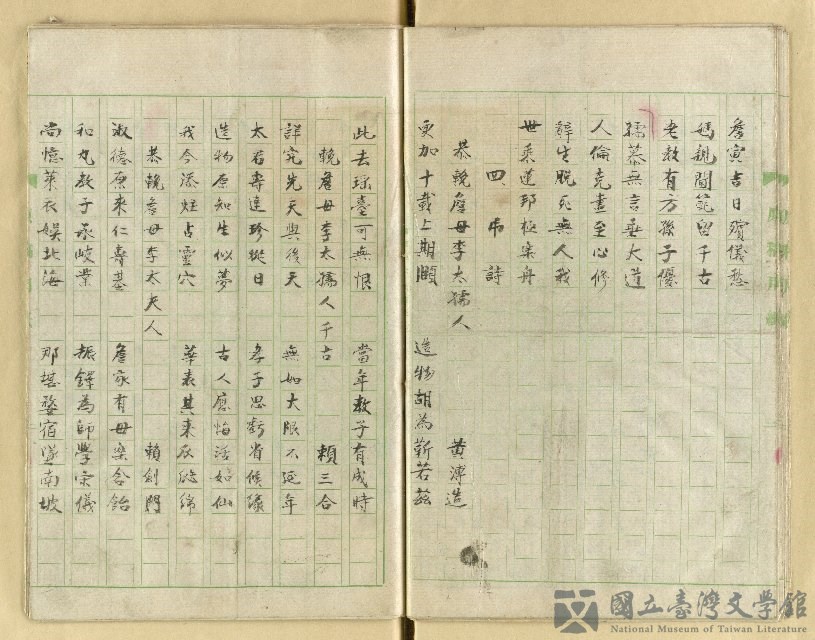 詹寅吉日殯儀愁
媽親閫範留千古
老教有方孫子優
孺慕無言垂大道
人倫克盡至心修
辭生脫死無人我
世乘道邦極樂舟
四 吊 詩
恭輓詹母李太孺人 黃溥造
更加十載上期頤 造物胡為靳若茲
此去瑤臺可無恨 當年教子有成時
輓詹母李太孺人千古 賴三合
詳究先天與後天 無如大限不延年
太君壽達珍從日 孝子思虧省候
造物原知生似夢 古人應悔活如仙
我今添炷占靈穴 華表其來灰綿
恭輓詹母李太夫人 賴劍門
淑德原來仁壽基 詹家有母樂含飴
和丸教子承岐業 振鐸為師學宋儀
尚憶萊衣娛北海 那堪婺宿墜南坡
國立臺灣文學館
National Museum of Taiwan Literature